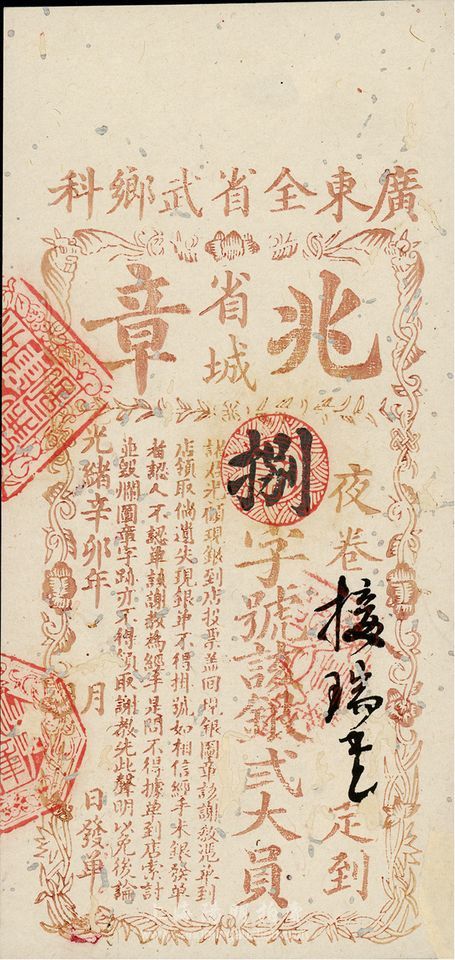 廣東全省武鄉科
兆
省城
章
夜卷接瑞
定到
捌字號該銀弍大員
諸君光顧現銀到店投票並回
銀圖章該謝教憑單到
店領取倘遺失現銀單不得掛號如相信經手未銀發單
者認人不認單該謝教為經手是問不得據單到店索討
並毀爛圖章字跡亦不得領取謝教先此聲明以免後論
光緒辛卯年 月 日發單